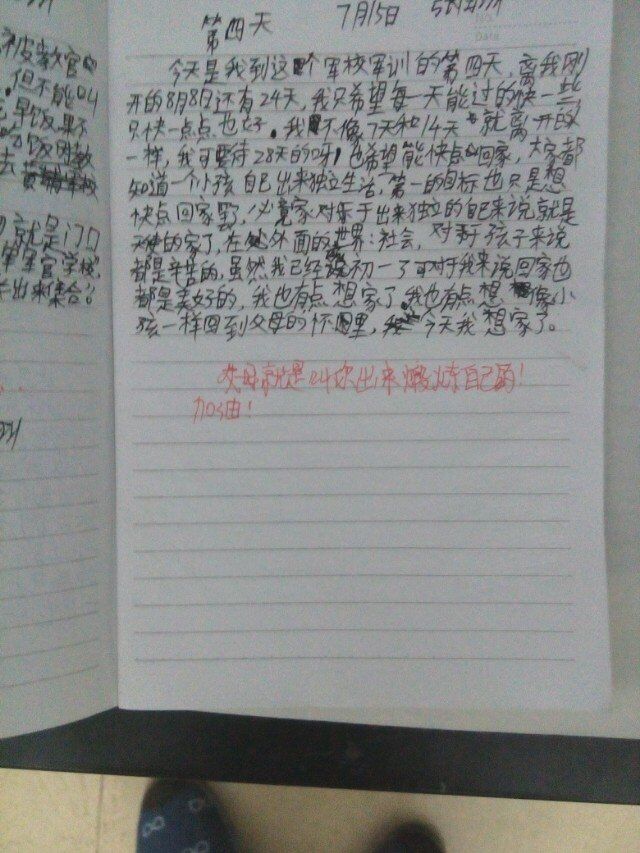 被教官
但不能叫
早饭,果不
饭时教
去
就是门口
军官学校,
出来集合?
第四天 7月15日
今天是我到这个军校军训的第四天,离我刚
开的8月8日还有24天,我只希望每一天能过的快一些
只快一点点也好。我不像7天和14天就离开的
一样,我可要待28天的呀!也希望能快点回家,大家都
知道一个小孩自己出来独立生活,第一的目标也只是想
快点回家罢,必竟家对乐于出来独立的自己来说就是
天使的家了,在处外面的世界:社会,对于孩子来说
都是辛苦的,虽然我已经初一了可对于我来说回家也
都是美好的,我也有点想家了,我也有点想像小
孩一样回到父母的怀里,今天我想家了。
父母就是叫你出来锻炼自己的!
加油!